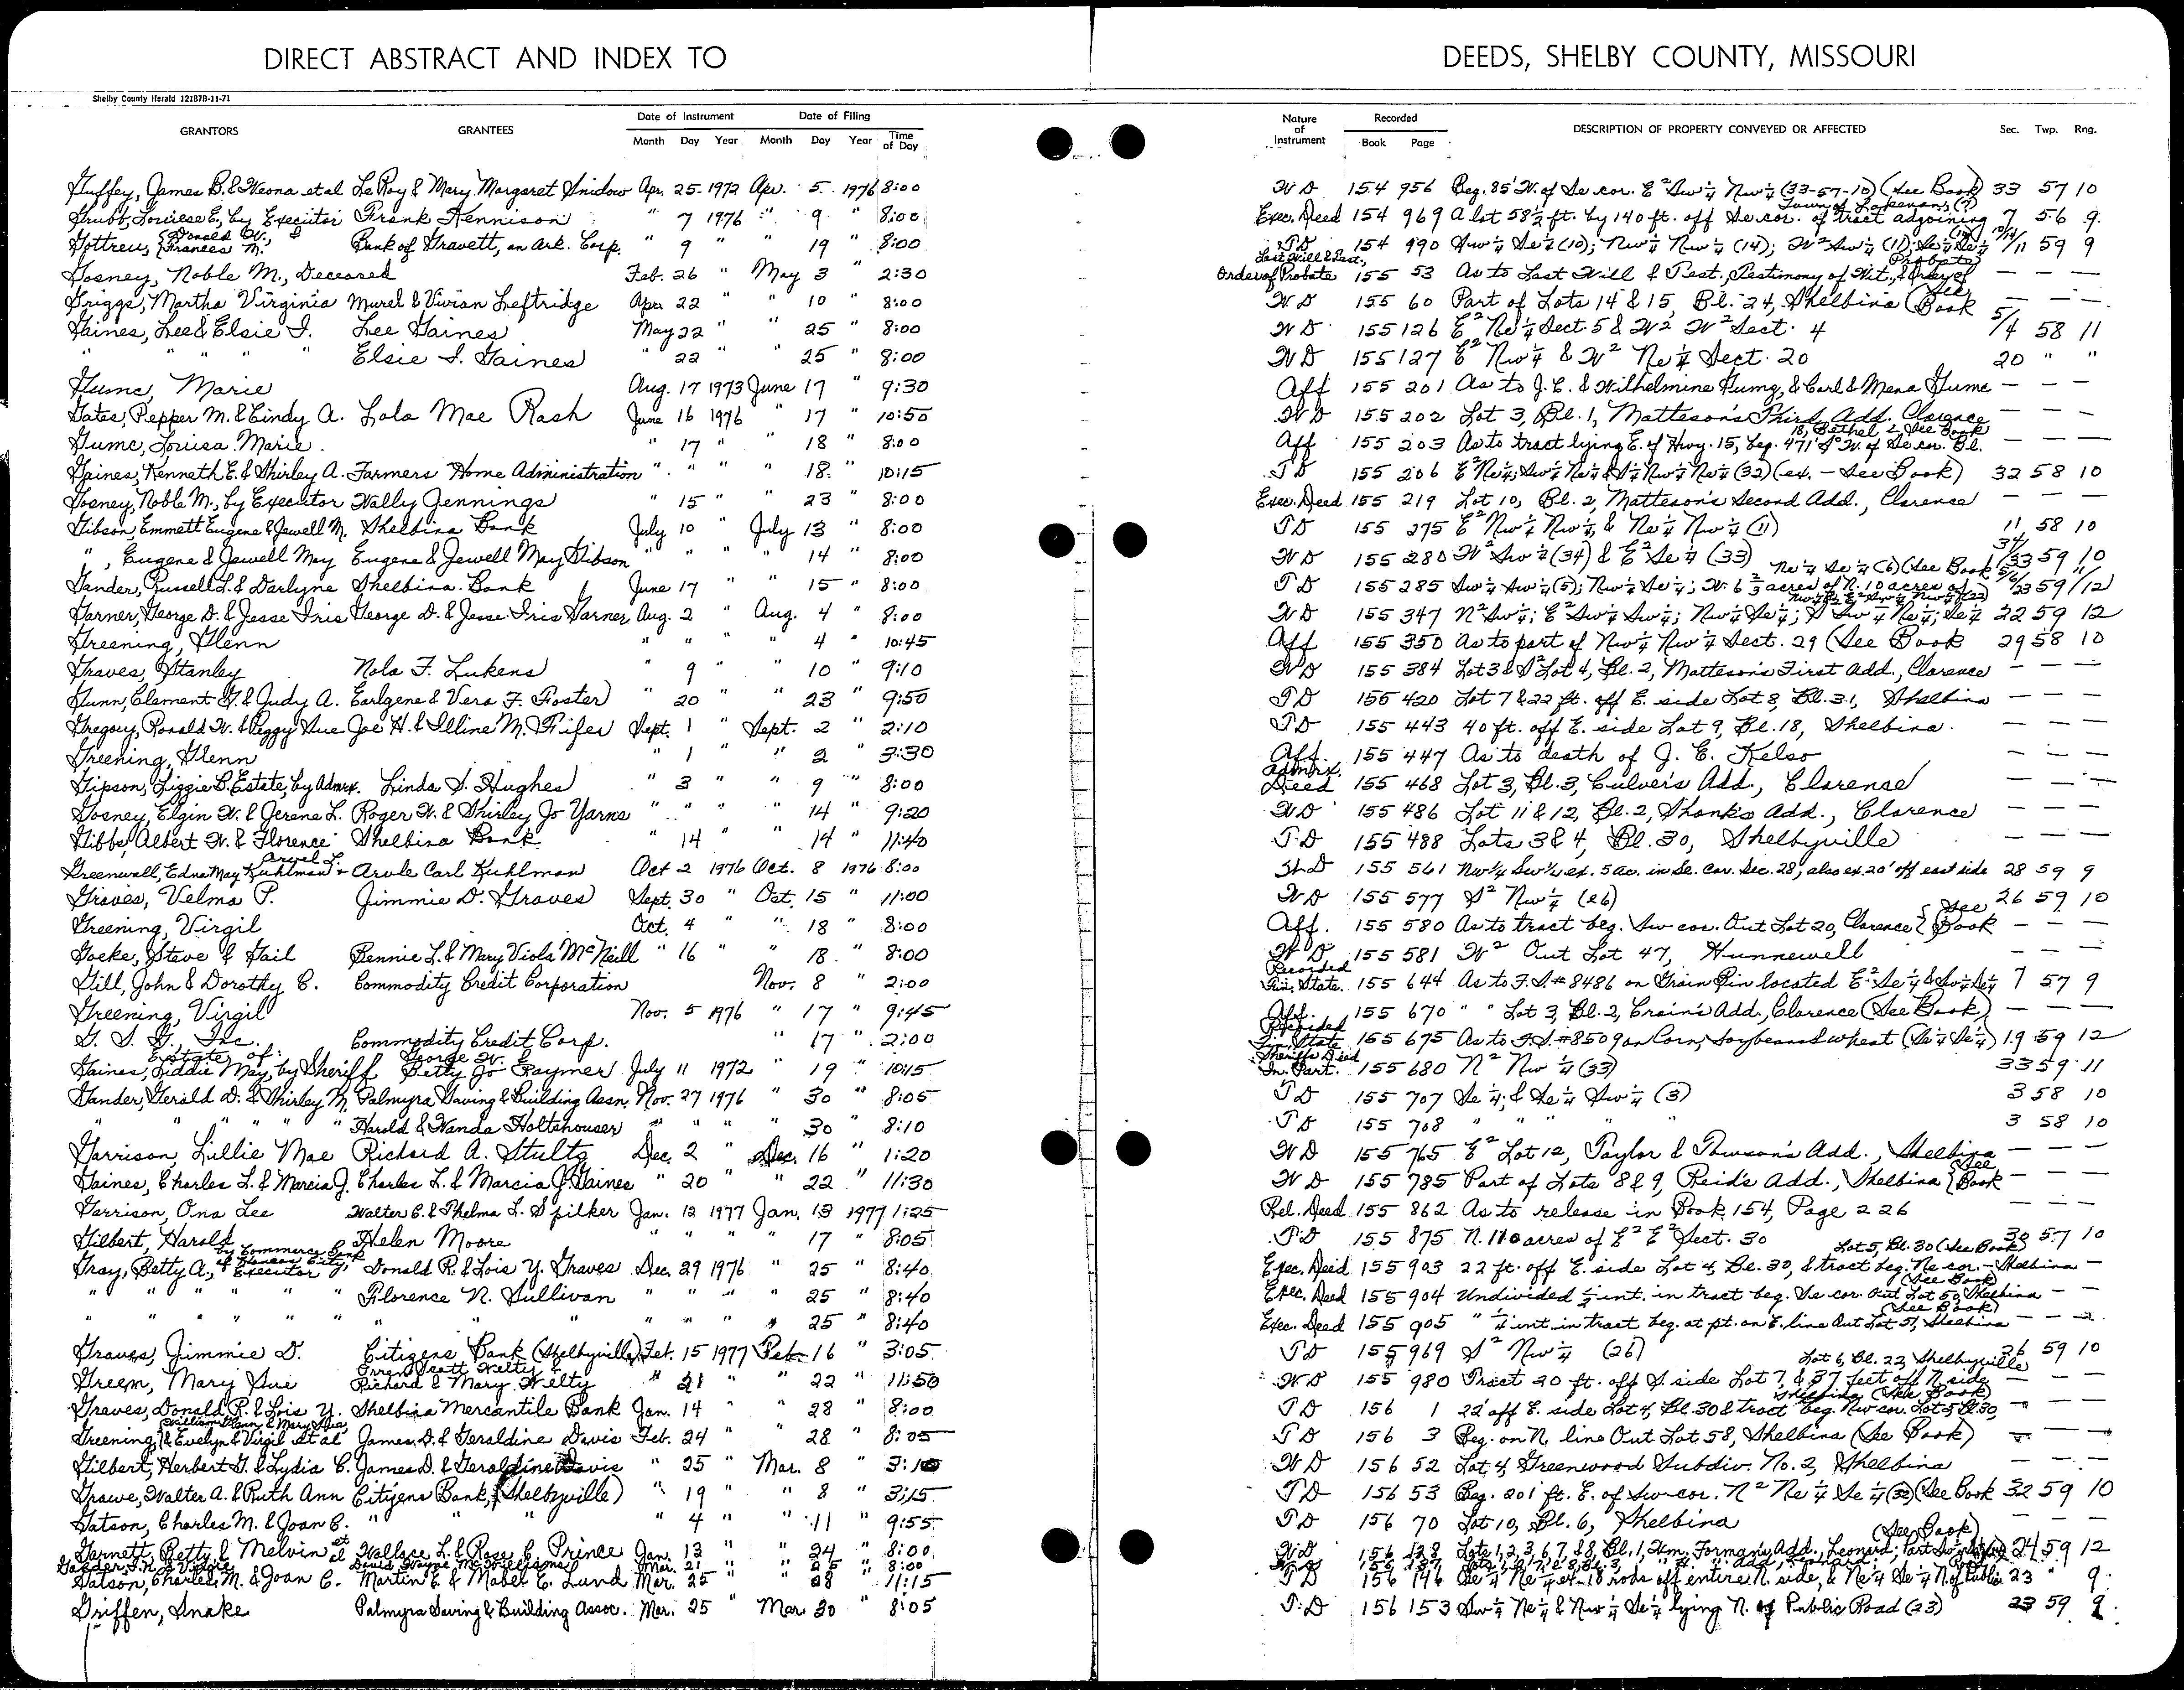 DIRECT ABSTRACT AND INDEX TO DEEDS, SHELBY COUNTY, MISSOURI
Shelby County Herald 12187B-11-71
GRANTORS GRANTEES Date of Instrument Month Day Year Date of Filing Month Day Year Time of Day Nature of Instrument Recorded Book Page DESCRIPTION OF PROPERTY CONVEYED OR AFFECTED Sec. Twp. Rng.
Guffey, James B. & Neona et al LeRoy & Mary Margaret Snidow Apr. 25 1972 Apr. 5 1976 8:00 WD 154 956 Beg. 85' N. of Se cor. E² Sw¼ Nw¼ (33-57-10) (See Book) 33 57 10
Grubb, Louiese E., by Executor Frank Kennison " 7 1976 " 9 " 8:00 Exec. Deed 154 969 A lot 58½ ft. by 140 ft. off Se cor. of tract adjoining Town of Lakenan, (7) 7 56 9
Gottreu, {Donald W., & Frances M. Bank of Gravett, an Ark. Corp. " 9 " " 19 " 8:00 TD 154 990 Sw¼ Se¼ (10); Nw¼ Nw¼ (14); W² Sw¼ (11); Se¼ Se¼ 10/14/11 59 9
Gosney, Noble M., Deceased Feb. 26 " May 3 " 2:30 Last Will & Test., Order of Probate 155 53 As to Last Will & Test., Testimony of Wit., & Order of Probate — — —
Griggs, Martha Virginia Murel & Vivian Leftridge Apr. 22 " " 10 " 8:00 WD 155 60 Part of Lots 14 & 15, Bl. 24, Shelbina (See Book — — —
Gaines, Lee & Elsie I. Lee Gaines May 22 " " 25 " 8:00 WD 155 126 E² Ne¼ Sect. 5 & W² W² Sect. 4 5/4 58 11
" " " " Elsie I. Gaines " 22 " 25 " 8:00 WD 155 127 E² Nw¼ & W² Ne¼ Sect. 20 20 " "
Gumc, Marie Aug. 17 1973 June 17 " 9:30 Aff 155 201 As to J. C. & Wilhelmine Gumz, & Carl & Mena Gume — — —
Gates, Pepper M. & Cindy A. Lola Mae Rash June 16 1976 " 17 " 10:50 WD 155 202 Lot 3, Bl. 1, Matteson's Third Add. Clarence — — —
Gumc, Louisa Marie " 17 " " 18 " 8:00 Aff 155 203 As to tract lying E. of Hwy. 15, beg. 471' S° W. of Se cor. Bl. 18, Bethel See Book — — —
Gaines, Kenneth E. & Shirley A. Farmers Home Administration " " " " 18 " 10:15 TD 155 206 E² Ne¼; Sw¼ Ne¼ & S½ Nw¼ Ne¼ (32) (ex. - See Book) 32 58 10
Gosney, Noble M., by Executor Wally Jennings " 15 " " 23 " 8:00 Exec. Deed 155 219 Lot 10, Bl. 2, Matteson's Second Add., Clarence — — —
Gibson, Emmett Eugene & Jewell M. Shelbina Bank July 10 " July 13 " 8:00 TD 155 275 E² Nw¼ Nw¼, & Ne¼ Nw¼ (11) 11 58 10
" , Eugene & Jewell May Eugene & Jewell May Gibson " " " " 14 " 8:00 WD 155 280 W² Sw¼ (34) & E² Se¼ (33) 34/33 59 10
Gander, Russell L. & Darlyne Shelbina Bank June 17 " " 15 " 8:00 TD 155 285 Sw¼ Sw¼ (5); Nw¼ Se¼; W. 6⅔ acres of N. 10 acres of Ne¼ Se¼ (6) (See Book 59 12
Garner, George D. & Jesse Iris George D. & Jesse Iris Garner Aug. 2 " Aug. 4 " 8:00 WD 155 347 N² Sw¼; E² Sw¼ Sw¼; Nw¼ Se¼; S Sw¼ Ne¼; Se¼ 22 59 12
Greening, Glenn " " " " 4 " 10:45 Aff 155 350 As to part of Nw¼ Nw¼ Sect. 29 (See Book 29 58 10
Graves, Stanley Nola F. Lukens " 9 " " 10 " 9:10 WD 155 384 Lot 3 & S² Lot 4, Bl. 2, Matteson's First Add., Clarence — — —
Gunn, Clement G. & Judy A. Earlgene & Vera F. Foster " 20 " " 23 " 9:50 TD 155 420 Lot 7 & 22 ft. off E. side Lot 8, Bl. 31, Shelbina — — —
Gregory, Ronald W. & Peggy Sue Joe H. & Illine M. Fifer Sept. 1 " Sept. 2 " 2:10 TD 155 443 40 ft. off E. side Lot 9, Bl. 18, Shelbina. — — —
Greening, Glenn " 1 " " 2 " 3:30 Aff. 155 447 As to death of J. E. Kelso — — —
Gipson, Lizzie B. Estate, by Admrx. Linda S. Hughes " 3 " " 9 " 8:00 Admrx. Deed 155 468 Lot 3, Bl. 3, Culver's Add., Clarence — — —
Gosney, Elgin W. & Jerene L. Roger W. & Shirley Jo Yarns " " " " 14 " 9:20 WD 155 486 Lot 11 & 12, Bl. 2, Shank's Add., Clarence — — —
Gibbs, Albert W. & Florence Shelbina Bank " 14 " 14 " 11:40 TD 155 488 Lots 3 & 4, Bl. 30, Shelbyville — — —
Greenwell, Edna May Kuhlman & Arvel L. Arvle Carl Kuhlman Oct 2 1976 Oct. 8 1976 8:00 WD 155 561 Nw¼ Sw¼ ex. 5 ac. in Se. cor. Sec. 28, also ex. 20' off east side 28 59 9
Graves, Velma P. Jimmie D. Graves Sept. 30 " Oct. 15 " 11:00 WD 155 577 S² Nw¼ (26) 26 59 10
Greening, Virgil Oct. 4 " " 18 " 8:00 Aff. 155 580 As to tract beg. Sw cor. Out Lot 20, Clarence {See Book — — —
Goeke, Steve & Gail Bennie L. & Mary Viola McNeill " 16 " " 18 " 8:00 WD 155 581 W² Out Lot 47, Hunnewell — — —
Gill, John & Dorothy C. Commodity Credit Corporation Nov. 8 " 2:00 Recorded Fin. State. 155 644 As to F.S. # 8486 on Grain Bin located E² Se¼ & Sw¼ Se¼ 7 57 9
Greening, Virgil Nov. 5 1976 " 17 " 9:45 Aff. 155 670 " " Lot 3, Bl. 2, Crain's Add., Clarence (See Book) — — —
G. S. G., Inc. Commodity Credit Corp. " 17 " 2:00 Recorded Fin. State 155 675 As to F.S. #8509 on Corn, Soybeans & wheat (Se¼ Se¼) 19 59 12
Gaines, Liddie May, Estate of: by Sheriff George W. & Betty Jo Raymer July 11 1972 " 19 " 10:15 Sheriff's Deed In Part. 155 680 N² Nw¼ (33) 33 59 11
Gander, Gerald D. & Shirley M. Palmyra Saving & Building Assn. Nov. 27 1976 " 30 " 8:05 TD 155 707 Se¼; & Se¼ Sw¼ (3) 3 58 10
" " " " " Harold & Wanda Holtshouser " " " " 30 " 8:10 TD 155 708 " " " " 3 58 10
Garrison, Lillie Mae Richard A. Stultz Dec. 2 " Dec. 16 " 1:20 WD 155 765 E² Lot 12, Taylor & Thomson's Add., Shelbina — — —
Gaines, Charles L. & Marcia J. Charles L. & Marcia J. Gaines " 20 " " 22 " 11:30 WD 155 785 Part of Lots 8 & 9, Reid's Add., Shelbina {See Book — — —
Garrison, Ona Lee Walter C. & Thelma L. Spilker Jan. 12 1977 Jan. 13 1977 1:25 Rel. Deed 155 862 As to release in Book 154, Page 226 — — —
Gilbert, Harold Thelen Moore " " " " 17 " 8:05 TD 155 875 N. 110 acres of E² E² Sect. 30 30 57 10
Gray, Betty A., by Commerce Bank of Kansas City, Executor Donald R. & Lois Y. Graves Dec. 29 1976 " 25 " 8:40 Exec. Deed 155 903 22 ft. off E. side Lot 4, Bl. 30, & tract beg. Ne cor. Lot 5, Bl. 30 (See Book) - Shelbina —
" " " " " " Florence N. Sullivan " " " " 25 " 8:40 Exec. Deed 155 904 Undivided ½ int. in tract beg. Se cor. Out Lot 50, Shelbina (See Book) — —
" " " " " " " " " " " " " 25 " 8:40 Exec. Deed 155 905 " ¼ int. in tract beg. at pt. on E. line Out Lot 51, Shelbina (See Book) — — —
Graves, Jimmie D. Citizens Bank (Shelbyville) Feb. 15 1977 Feb. 16 " 3:05 TD 155 969 S² Nw¼ (26) 26 59 10
Green, Mary Sue Scott Welty & Richard & Mary Welty " 21 " " 22 " 11:50 WD 155 980 Tract 20 ft. off S. side Lot 7, & 37 feet off N. side Lot 6, Bl. 23, Shelbyville — — —
Graves, Donald R. & Lois Y. Shelbina Mercantile Bank Jan. 14 " " 28 " 8:00 TD 156 1 22' off E. side Lot 4, Bl. 30 & tract beg. Nw cor. Lot 5 Bl. 30, Shelbina (See Book) — — —
Greening, {William Glenn & Mary Sue, & Evelyn & Virgil et al James D. & Geraldine Davis Feb. 24 " " 28 " 8:05 TD 156 3 Beg. on N. line Out Lot 58, Shelbina (See Book) — — —
Gilbert, Herbert G. & Lydia C. James D. & Geraldine Davis " 25 " Mar. 8 " 3:10 WD 156 52 Lot 4, Greenwood Subdiv. No. 2, Shelbina — — —
Grawe, Walter A. & Ruth Ann Citizens Bank, (Shelbyville) " 19 " " 8 " 3:15 TD 156 53 Beg. 201 ft. E. of Sw cor. N² Ne¼ Se¼ (32) (See Book 32 59 10
Gatson, Charles M. & Joan C. " " " 4 " " 11 " 9:55 TD 156 70 Lot 10, Bl. 6, Shelbina — — —
Garnett, Betty & Melvin et al Wallace L. & Rose C. Prince Jan. 13 " " 24 " 8:00 WD 156 128 Lots 1, 2, 3, 6, 7, & 8, Bl. 1, Wm. Forman's Add., Leonard; (See Book) 24 59 12
David Wayne McWilliams Mar. 21 " " 8:00
Gatson, Charles M. & Joan C. Martin E. & Mabel E. Lund Mar. 25 " " 28 " 11:15 TD 156 146 Se¼ Ne¼ ex. 18 rods off entire N. side, & Ne¼ Se¼ N. of Public Road 23 " 9
Griffen, Snake Palmyra Saving & Building Assoc. Mar. 25 " Mar. 30 " 8:05 T.D 156 153 Sw¼ Ne¼ & Nw¼ Se¼ lying N. of Public Road (23) 23 59 9